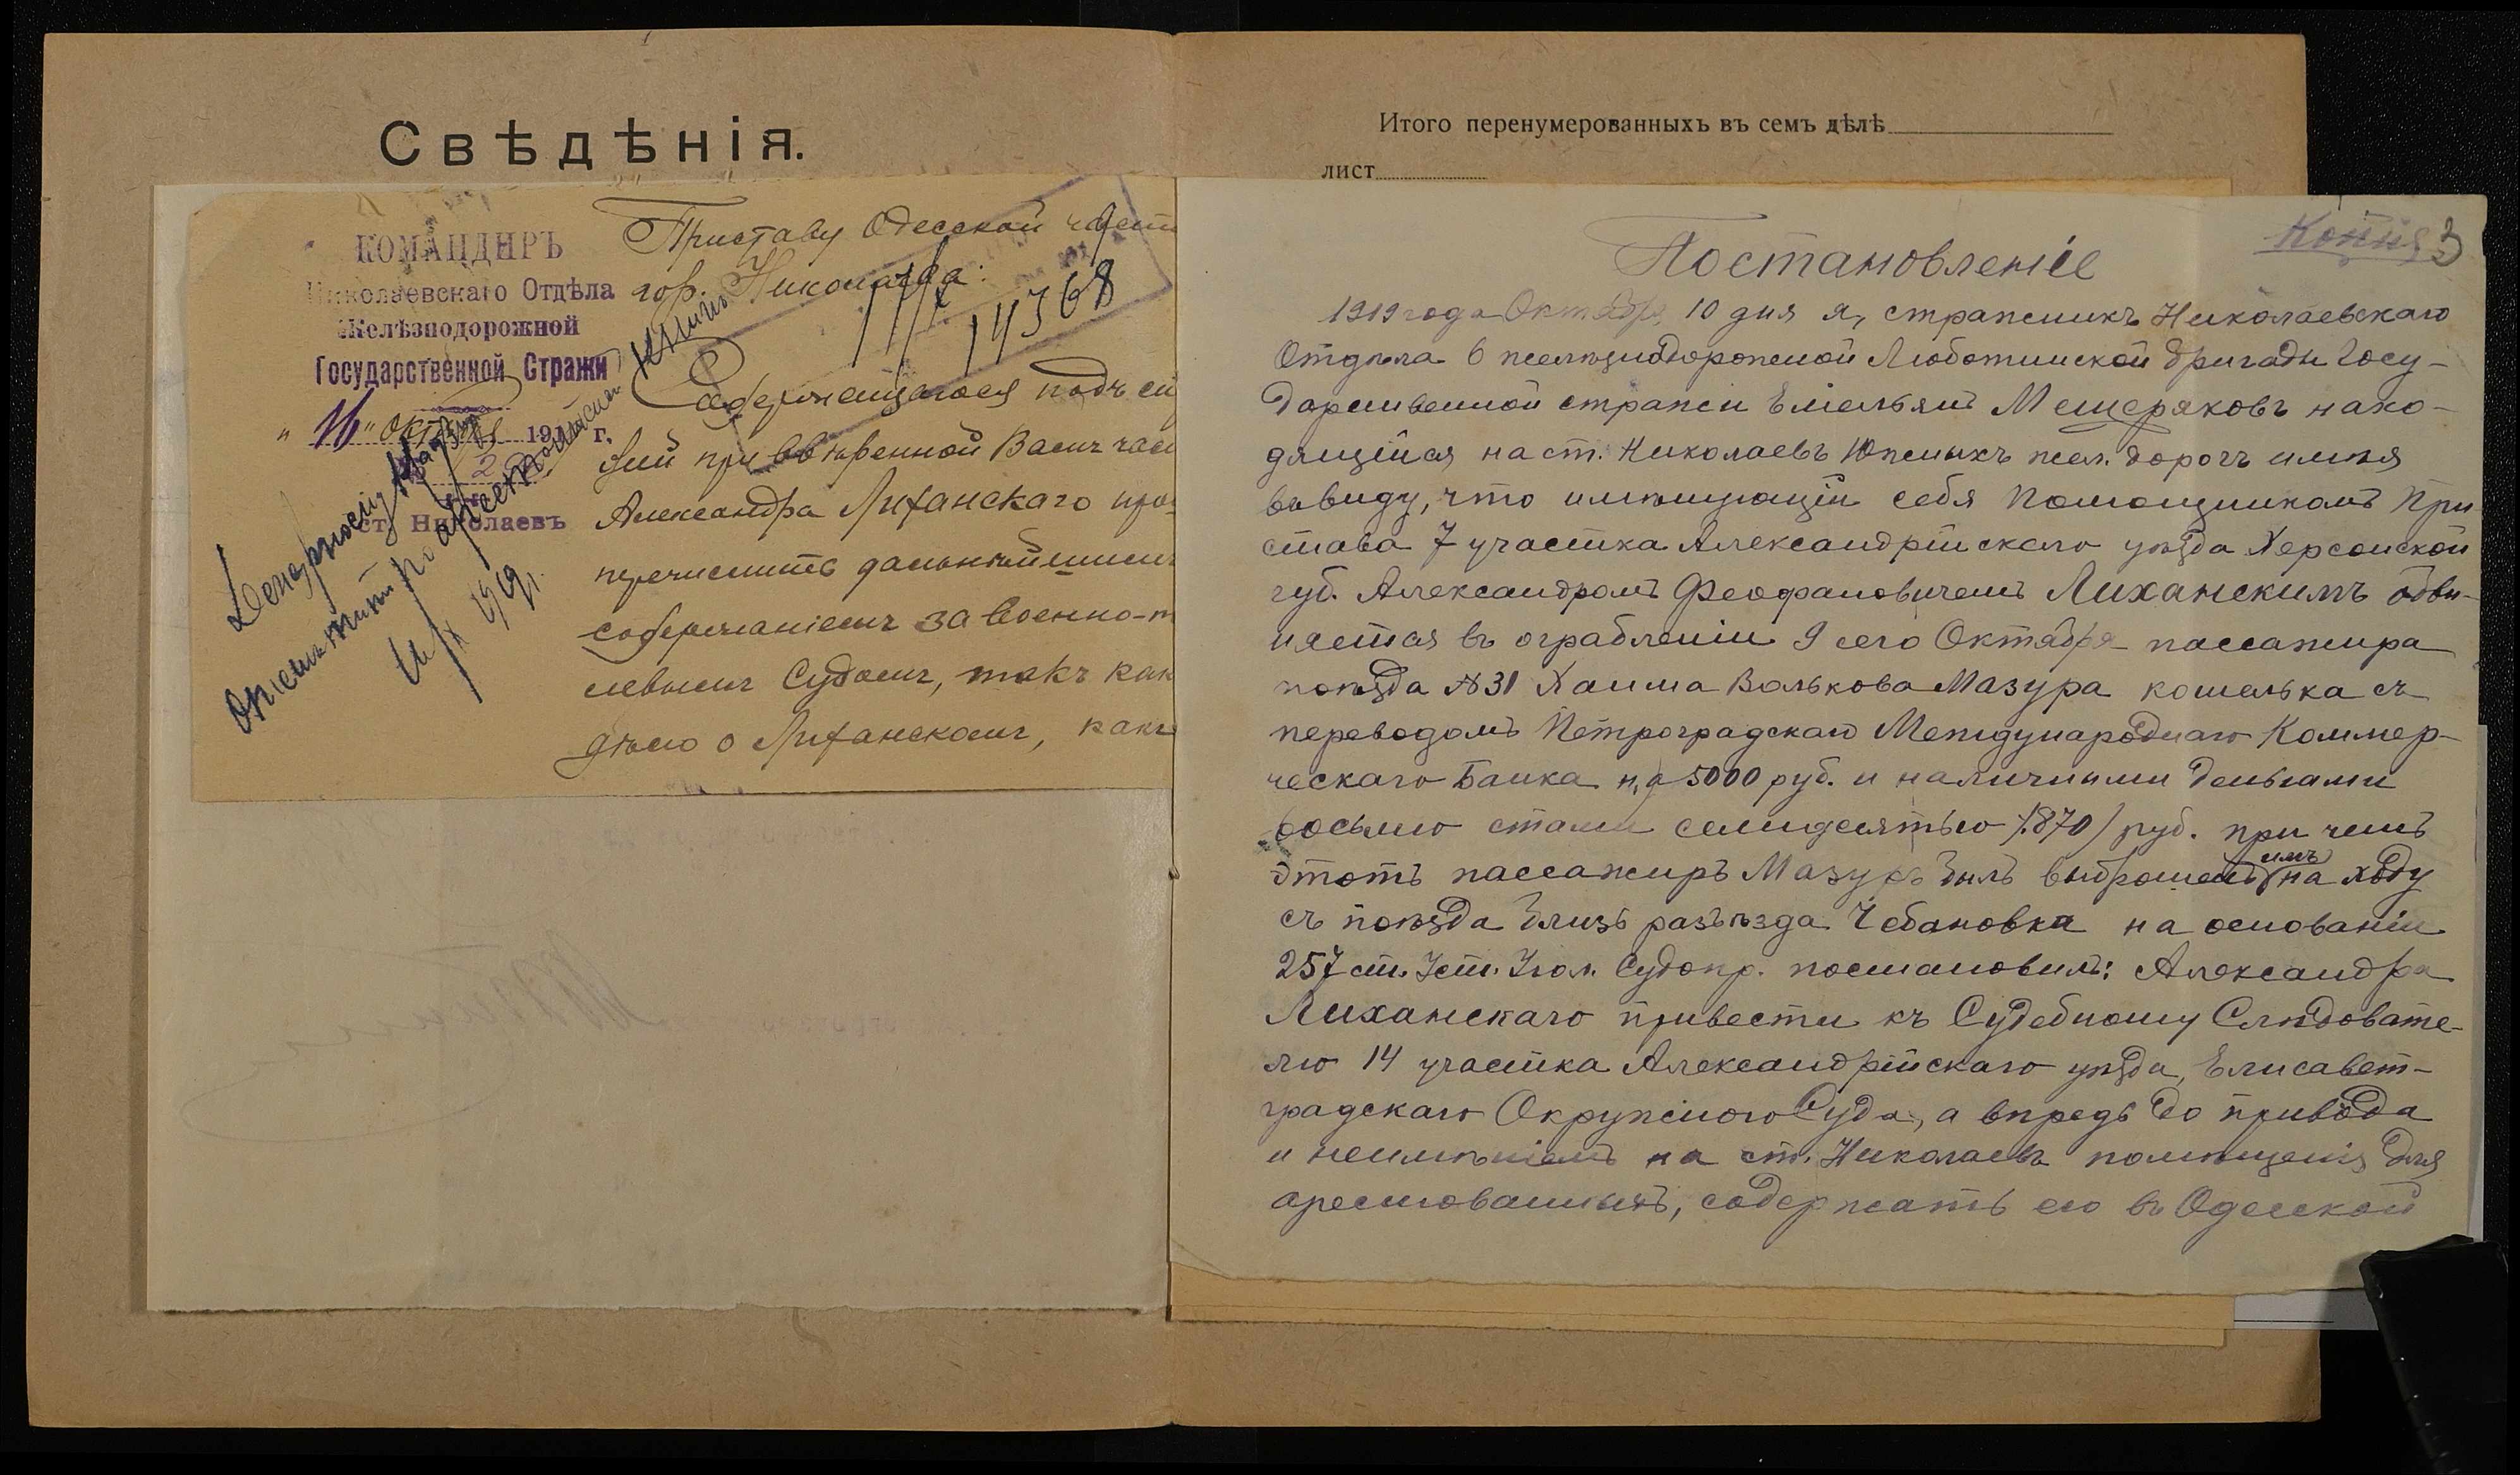 Свѣдѣнія.
КОМАНДИРЪ
Николаевскаго Отдѣла
Желѣзнодорожной
Государственной Стражи
"11" октября 191 г.
ст. Николаевъ
Приставу Одесской части
гор. Николаева.
11/X
14368
Содержащагося подъ
при ввѣренной Вамъ
Александра Лиханскаго
перечислить дальнѣйшимъ
содержаніемъ за Военно-
левымъ Судомъ, такъ как
дѣло о Лиханскомъ, какъ
Дежурному
отмѣтить
11/X 1919 г.
Итого перенумерованныхъ въ семъ дѣлѣ
лист
Копія 3
Постановленіе
1919 года Октября 10 дня я, стражникъ Николаевскаго
Отдѣла 6 желѣзнодорожной Люботинской бригады Госу-
дарственной стражи Емельянъ Мещеряковъ нахо-
дящійся на ст. Николаевъ Южныхъ жел. дорогъ имѣя
ввиду, что именующій себя Помощникомъ При
става 7 участка Александрійскаго уѣзда Херсонской
губ. Александромъ Феофановичемъ Лиханскимъ обви-
няется въ ограбленіи 9 сего Октября пассажира
поѣзда №31 Хаима Волькова Мазура кошелька съ
переводомъ Петроградскаго Международнаго Коммер-
ческаго Банка на 5000 руб. и наличными деньгами
восьмью стами семидесятью /870/ руб. при чемъ
этотъ пассажиръ Мазуръ былъ выброшенъ имъ на ходу
съ поѣзда близъ разъѣзда Чебановка на основаніи
257 ст. Уст. Угол. Судопр. постановилъ: Александра
Лиханскаго привести къ Судебному Слѣдовате-
лю 14 участка Александрійскаго уѣзда, Елисавет-
градскаго Окружного Суда, а впредь до привода
и неимѣніемъ на ст. Николаевъ помѣщенія для
арестованныхъ, содержать его въ Одесской